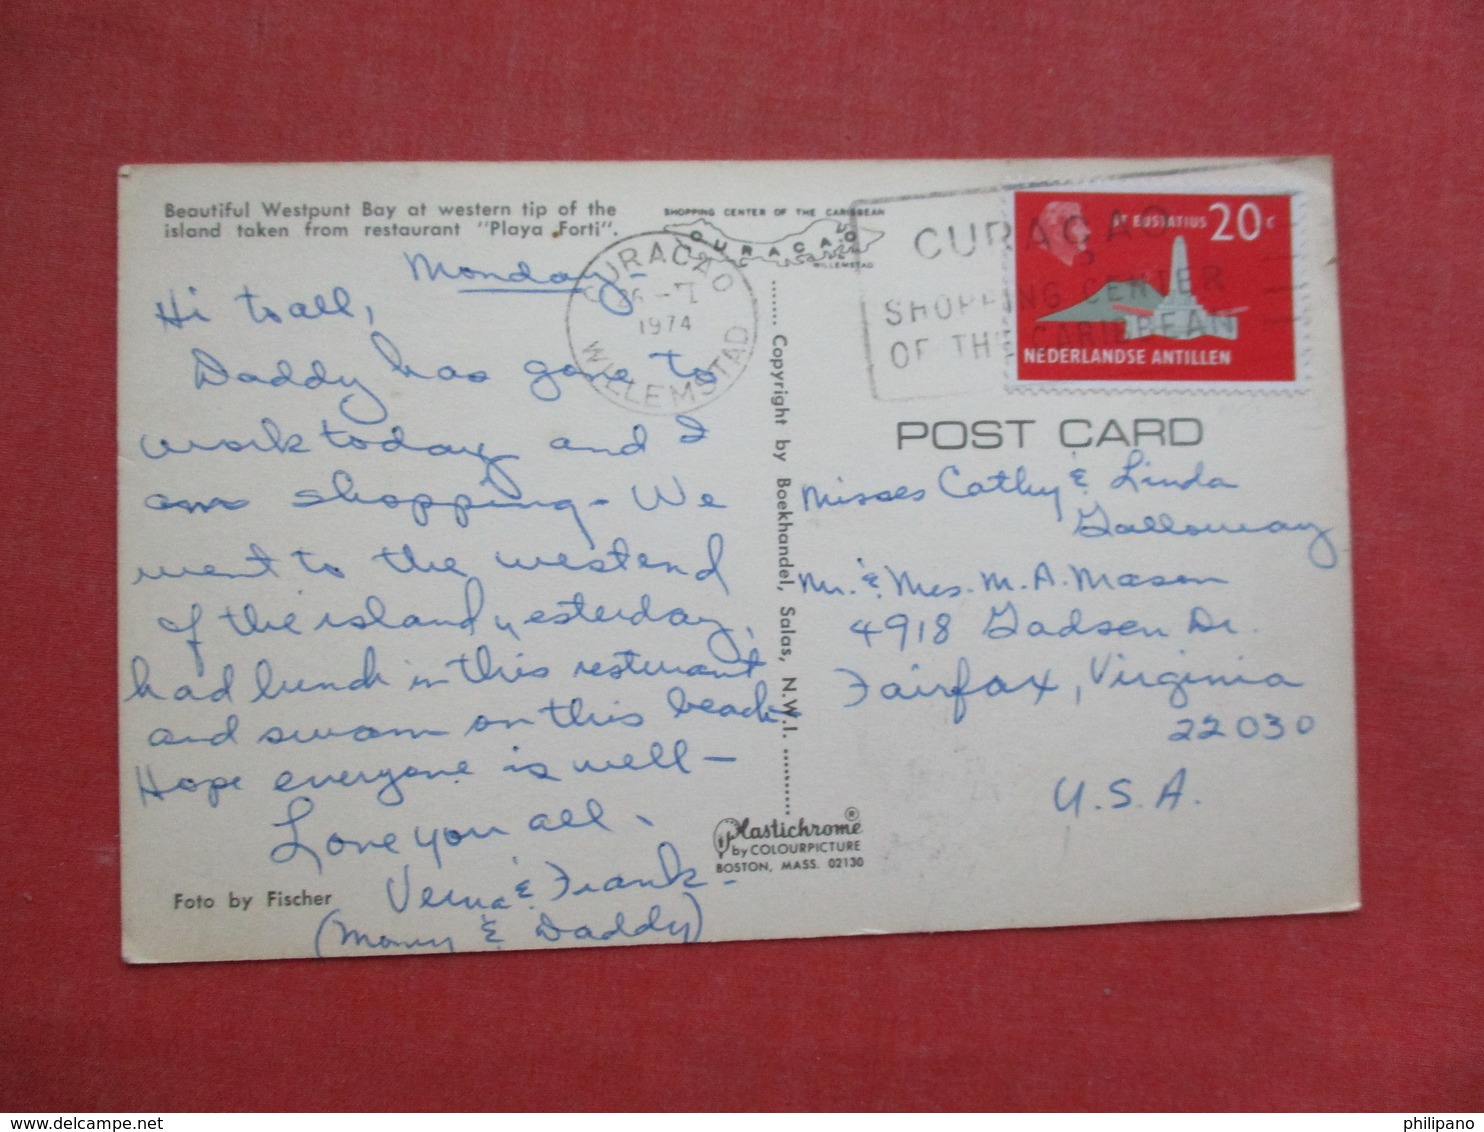 Beautiful Westpunt Bay at western tip of the
island taken from restaurant "Playa Forti".
Monday -
Hi to all,
Daddy has gone to
work today and I
am shopping - We
went to the westend
of the island yesterday,
had lunch in this resturant
and swam on this beach -
Hope everyone is well -
Love you all.
Verna & Frank -
(Mom & Daddy)
Foto by Fischer
SHOPPING CENTER OF THE CARIBBEAN
CURACAO
WILLEMSTAD
CURACAO
1974
WILLEMSTAD
Copyright by Boekhandel, Salas, N.W.I.
Plastichrome®
by COLOURPICTURE
BOSTON, MASS. 02130
CURAÇAO
SHOPPING CENTER
OF THE CARIBBEAN
ST EUSTATIUS 20 c
NEDERLANDSE ANTILLEN
POST CARD
Misses Cathy & Linda
Galloway
Mr. & Mrs. M. A. Mason
4918 Gadsen Dr.
Fairfax, Virginia
22030
U.S.A.
philipano